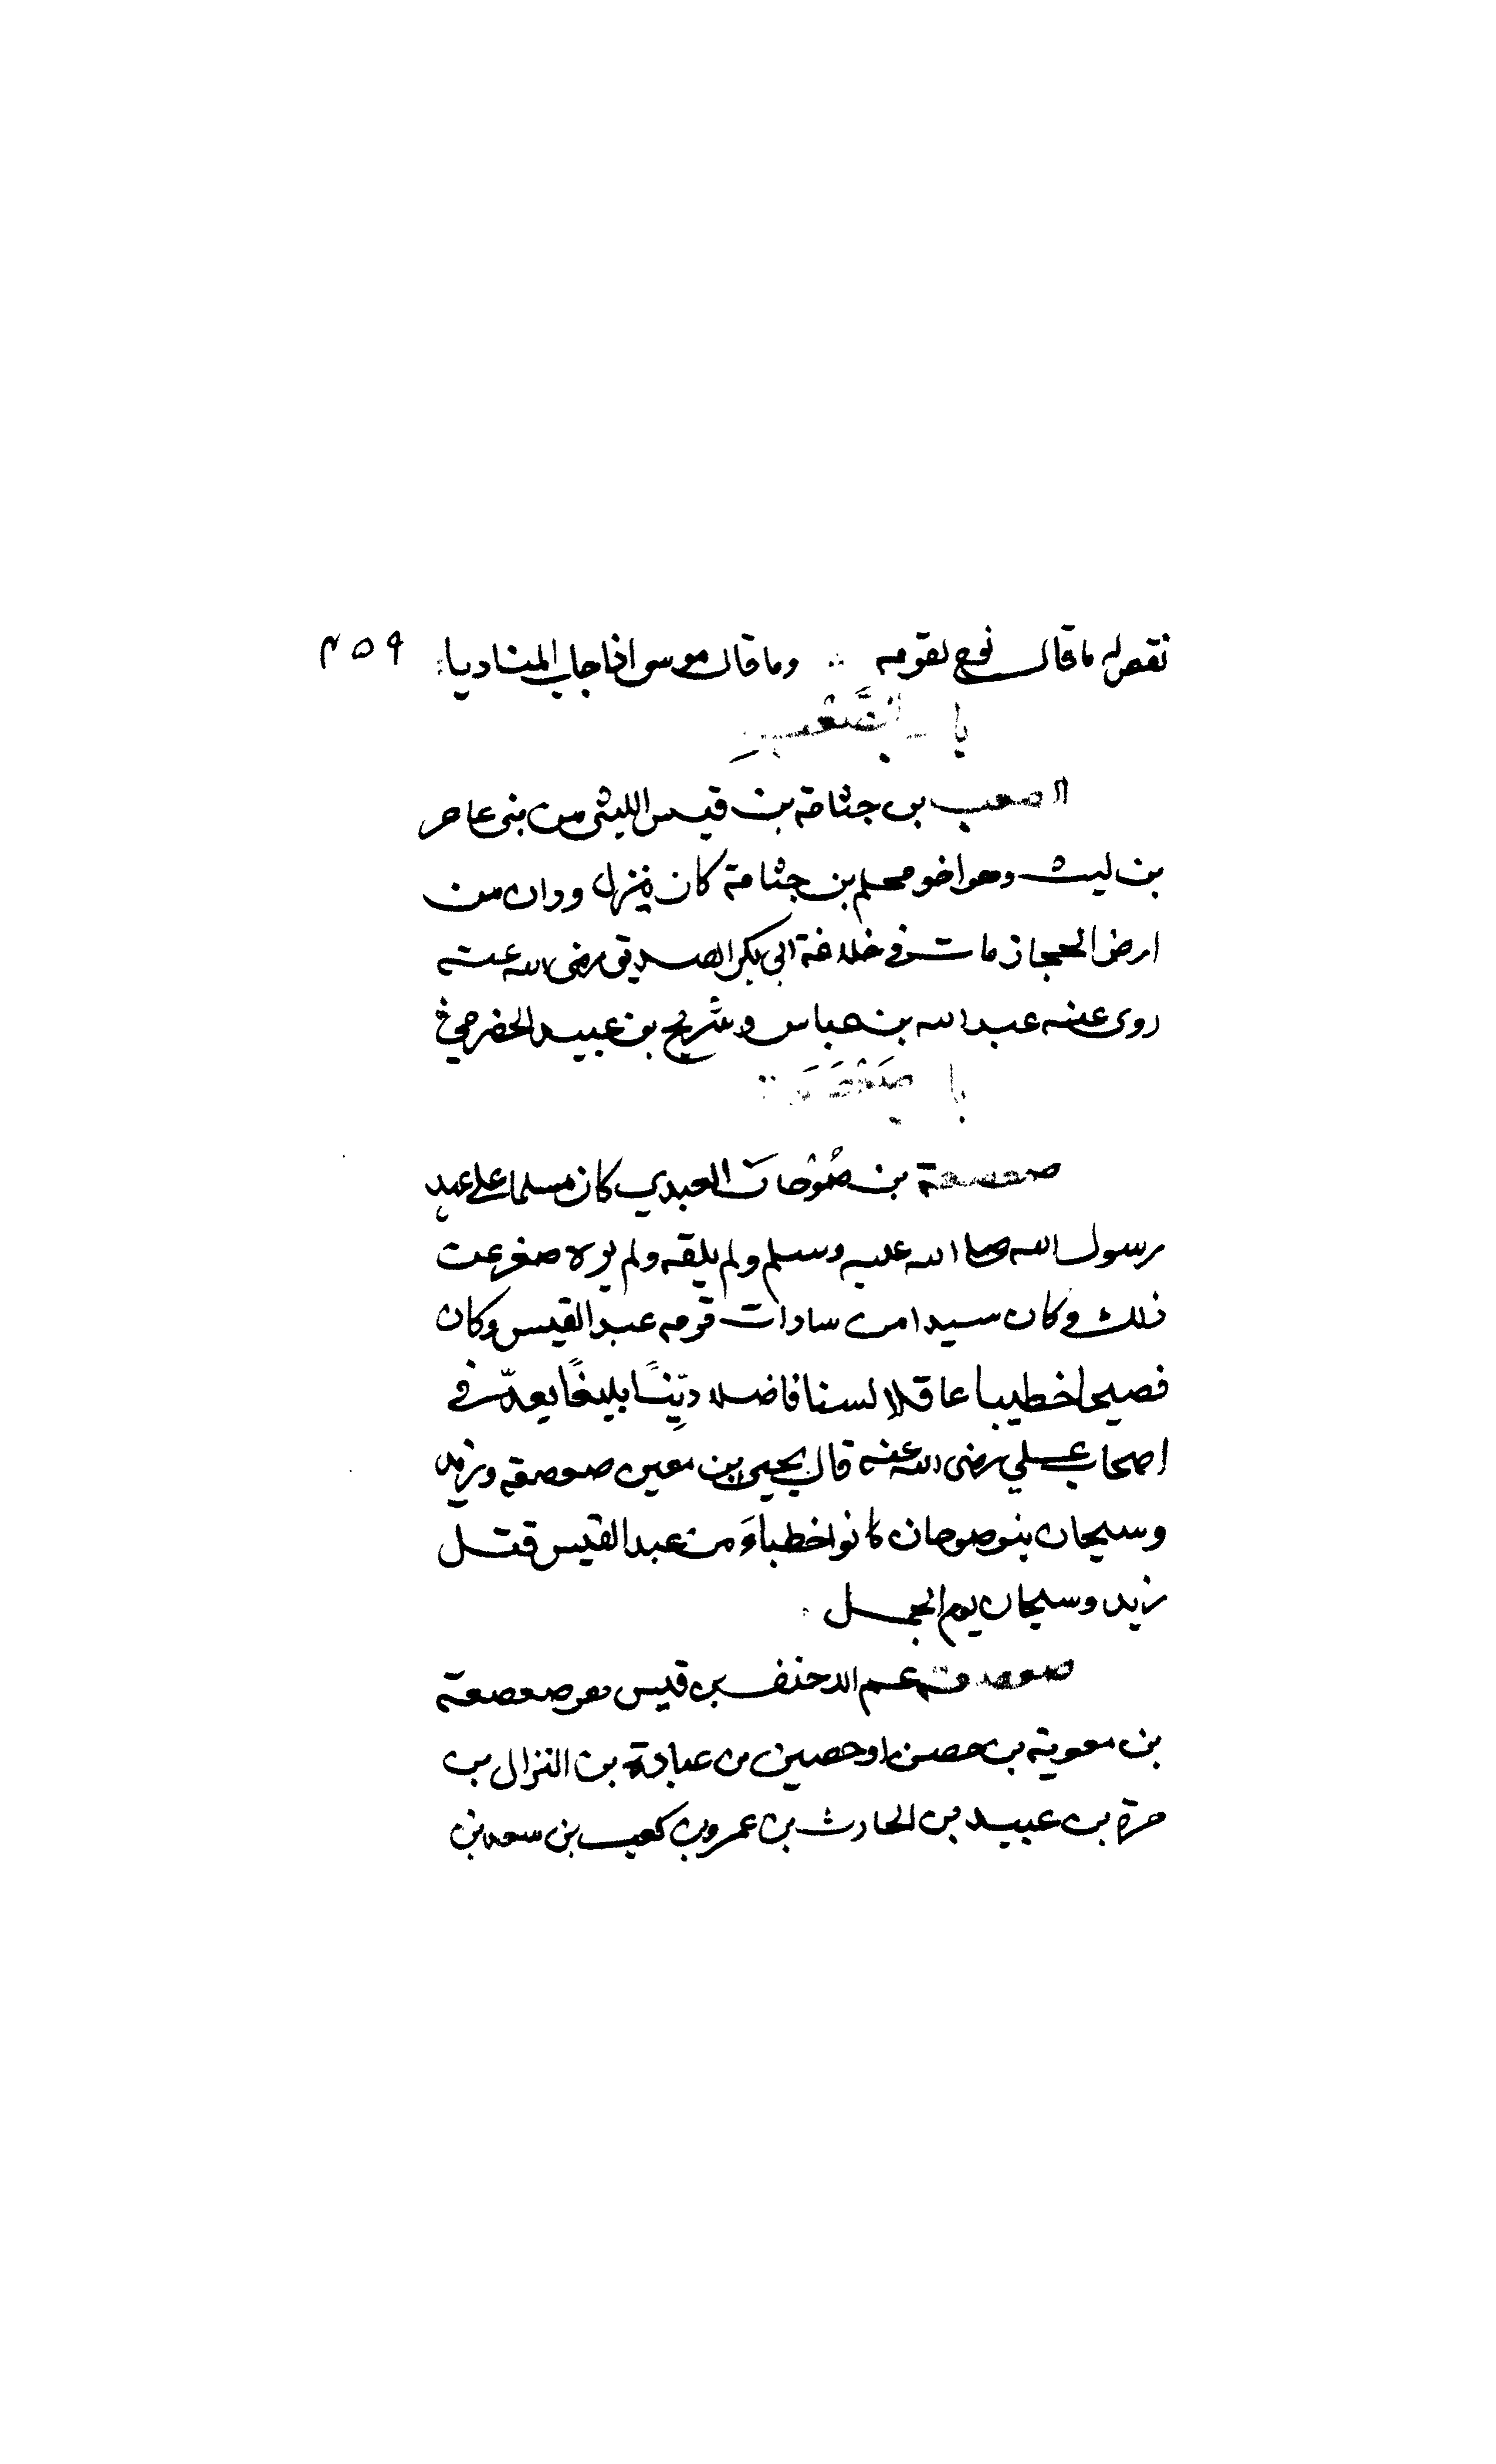 نقص له ما قال نوح لقومه ∴ وما قال موسى اذ اجاب المناديا ۴۵۹
باب الصَّعْب
الصعب بن جثامة بن قيس الليثي من بني عامر
بن ليث وهو اخو محلم بن جثامة كان ينزل ودان من
ارض الحجاز مات في خلافة ابي بكر الصديق رضى الله عنه
روى عنه عبد الله بن عباس وشريح بن عبيد الحضرمي
باب صَعْصَعَة
صعصعة بن صُوْحان العبدي كان مسلما على عهد
رسول الله صلى الله عليه وسلم ولم يلقه ولم يره صغر عن
ذلك وكان سيدا من سادات قومه عبد القيس وكان
فصيحا خطيبا عاقلا لسنا فاضلا ديِّنًا بليغًا يعدّ في
اصحاب علي رضى الله عنه قال يحيى بن معين صعصعة وزيد
وسيحان بنو صوحان كانوا خطباءَ من عبد القيس قتل
زيد وسيحان يوم الجمل
صعصعة عم الاحنف بن قيس هو صعصعة
بن معوية بن حصن او حصين بن عبادة بن النزال بن
مرة بن عبيد بن الحارث بن عمرو بن كعب بن سعد بن